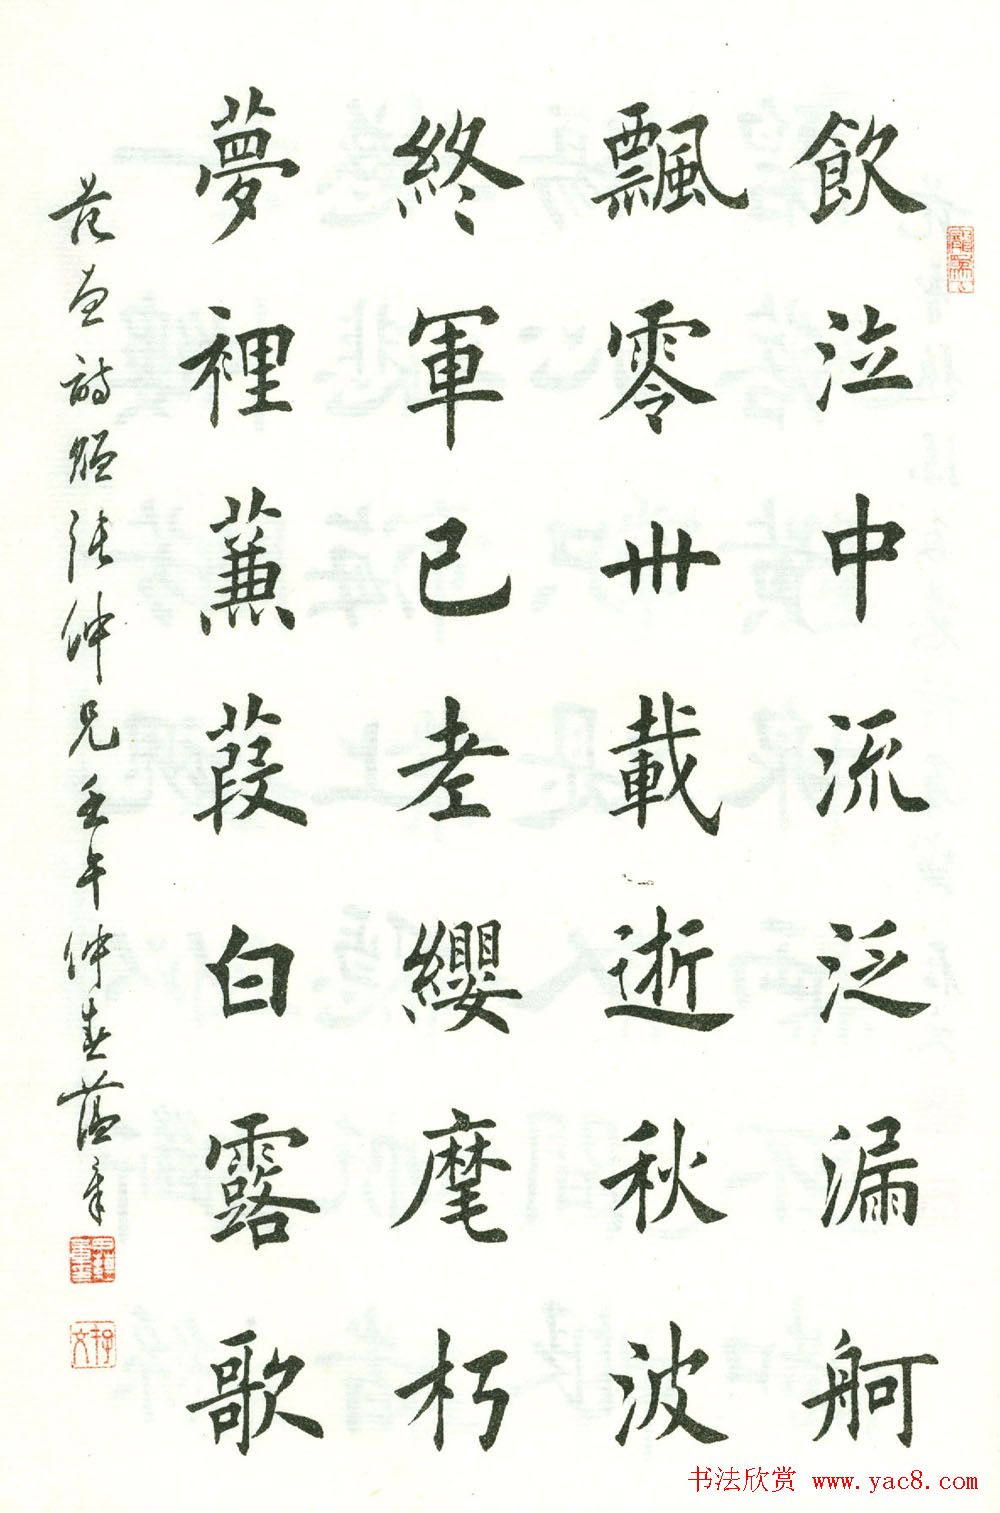 飲泣中流泛漏舸
飄零卅載逝秋波
終軍已老纓麾朽
夢裡蒹葭白露歌
范曾詩贈張仲兄壬午仲春蕴章
书法欣赏 www.yac8.com